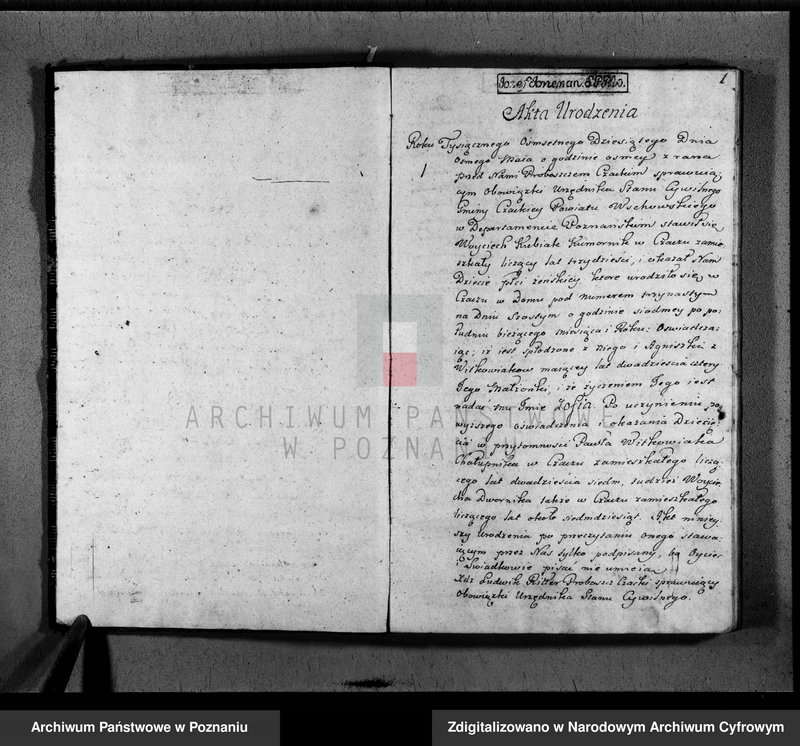 1
Akta Urodzenia
Roku Tysiącznego Osmsetnego Dziesiątego Dnia
1
Osmego Maia o godzinie osmey z rana
przed Nami Proboszczem Czackim sprawuią
cym Obowiązki Urzędnika Stanu Cywilnego
Gminy Czackiey Powiatu Wschowskiego
w Departamencie Poznańskim stawił się
Woyciech Kubiak Kumornik w Czaczu zamie
szkały liczący lat trzydzieści, i okazał Nam
Dziecie płci żeńskiey ktore urodziło się w
Czaczu w Domu pod numerem trzynastym
na Dniu Szostym o godzinie siodmey po po
łudniu bieżącego miesiąca i Roku: Oswiadcza
iąc; iż iest spłodzone z niego i Agniszki z
Witkowiakow maiącey lat dwadziescia cztery
Jego Małżonki, i że życzeniem Jego iest
nadać mu Imie Zofia. Po uczynieniu po
wyższego oswiadczenia i okazania Dziecię
cia w przytomnosci Pawła Witkowiaka
Chałupnika w Czaczu zamieszkałego liczą
cego lat dwadziescia siedm, tudzież Woycie
cha Dwornika także w Czaczu zamieszkałego
liczącego lat około siedmdziesiąt. Akt niniey
szy Urodzenia po przeczytaniu onego stawa
iącym przez Nas tylko podpisany, bo Oyciec
i Swiadkowie pisać nie umieią
Xdz Ludwik Ritter Proboszcz Czacki sprawuiący
Obowiązki Urzędnika Stanu Cywilnego.
ARCHIWUM PAŃSTWOWE
W POZNANIU
Archiwum Państwowe w Poznaniu
Zdigitalizowano w Narodowym Archiwum Cyfrowym